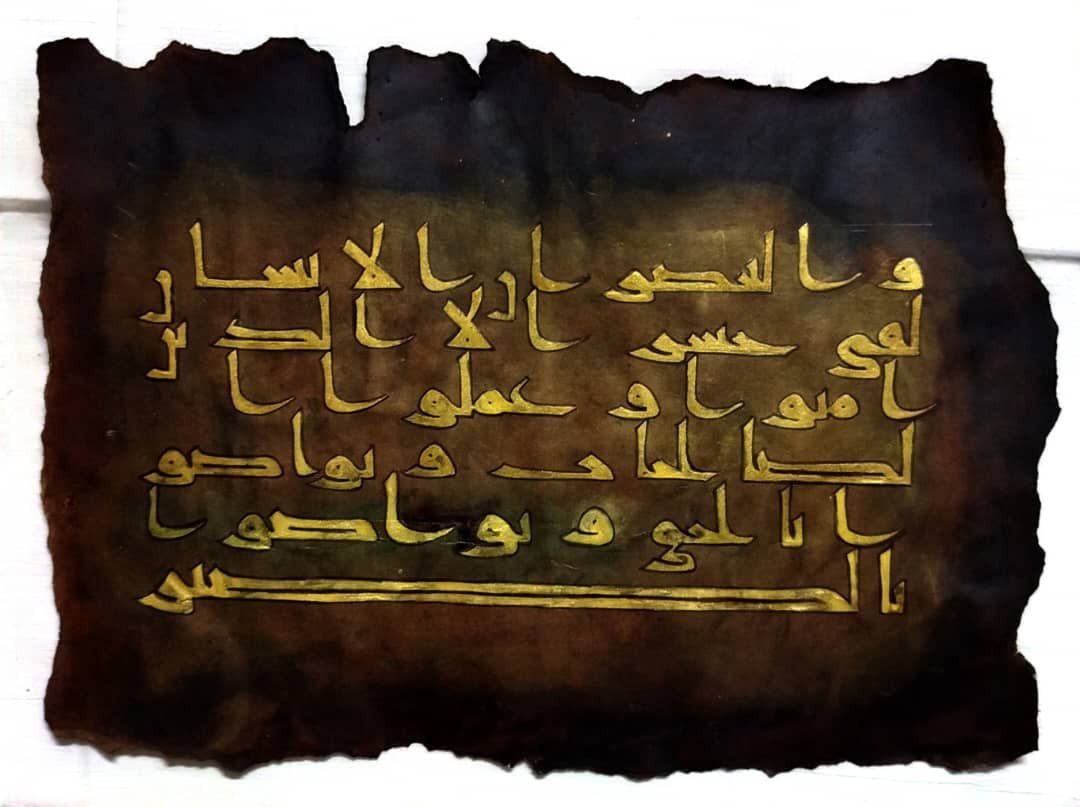 والعصر ان الانسان
لفي خسر الا الذين
امنوا وعملوا ا
لصالحات وتواصو
ا بالحق وتواصوا
بالصبر